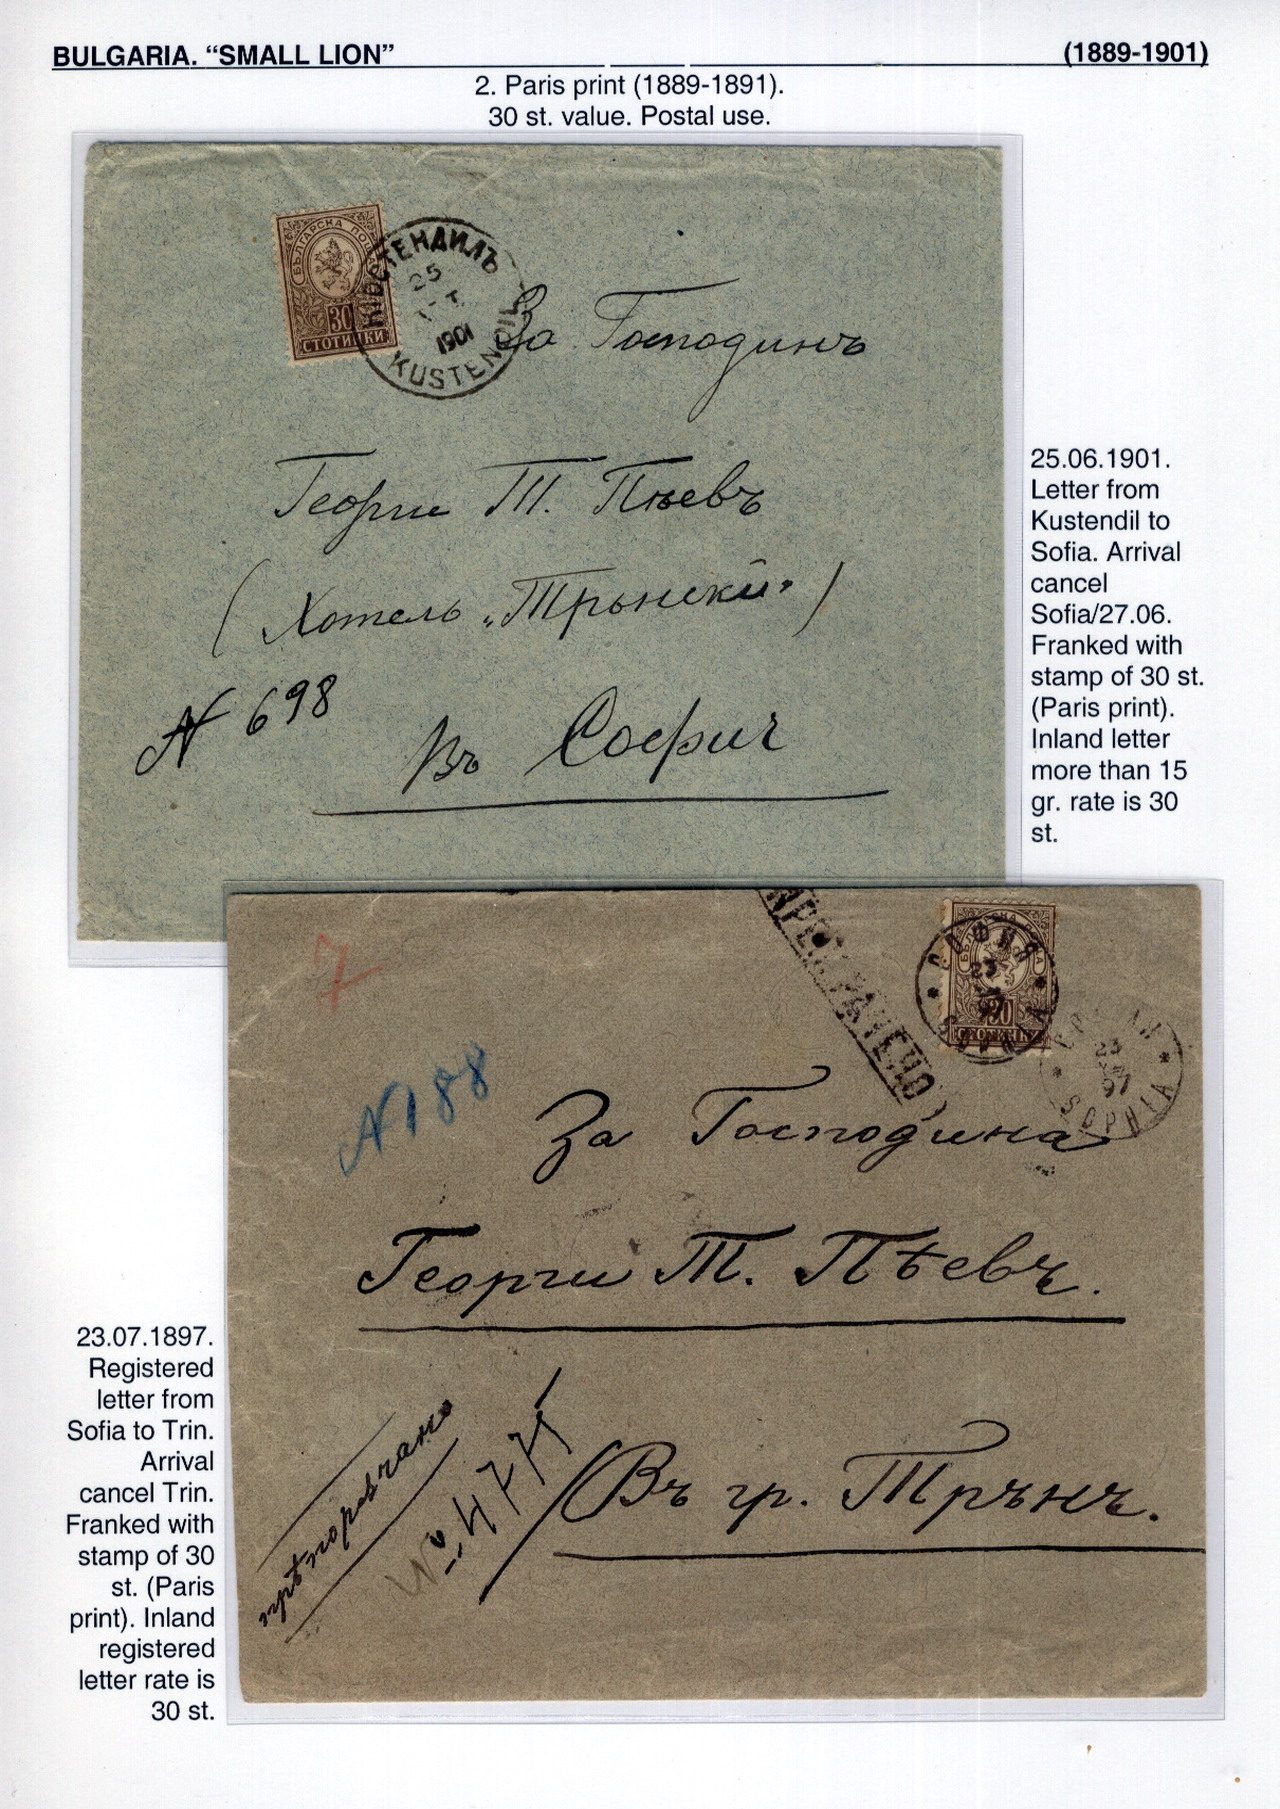 BULGARIA. “SMALL LION” (1889-1901)
2. Paris print (1889-1891).
30 st. value. Postal use.
БЪЛГАРСКА ПОЩА
30
СТОТИНКИ
КЮСТЕНДИЛЪ
25
1901
KUSTENDIL
За Господинъ
Георги Т. Пѣевъ
(Хотель „Трънски“)
N 698
Въ София
25.06.1901.
Letter from
Kustendil to
Sofia. Arrival
cancel
Sofia/27.06.
Franked with
stamp of 30 st.
(Paris print).
Inland letter
more than 15
gr. rate is 30
st.
7
СОФИЯ
23
97
SOPHIA
30
СТОТИНКИ
23
97
SOPHIA
N 188
За Господина
Георги Т. Пѣевъ.
прѣпоръчано
№ 471
Въ гр. Трънъ.
23.07.1897.
Registered
letter from
Sofia to Trin.
Arrival
cancel Trin.
Franked with
stamp of 30
st. (Paris
print). Inland
registered
letter rate is
30 st.